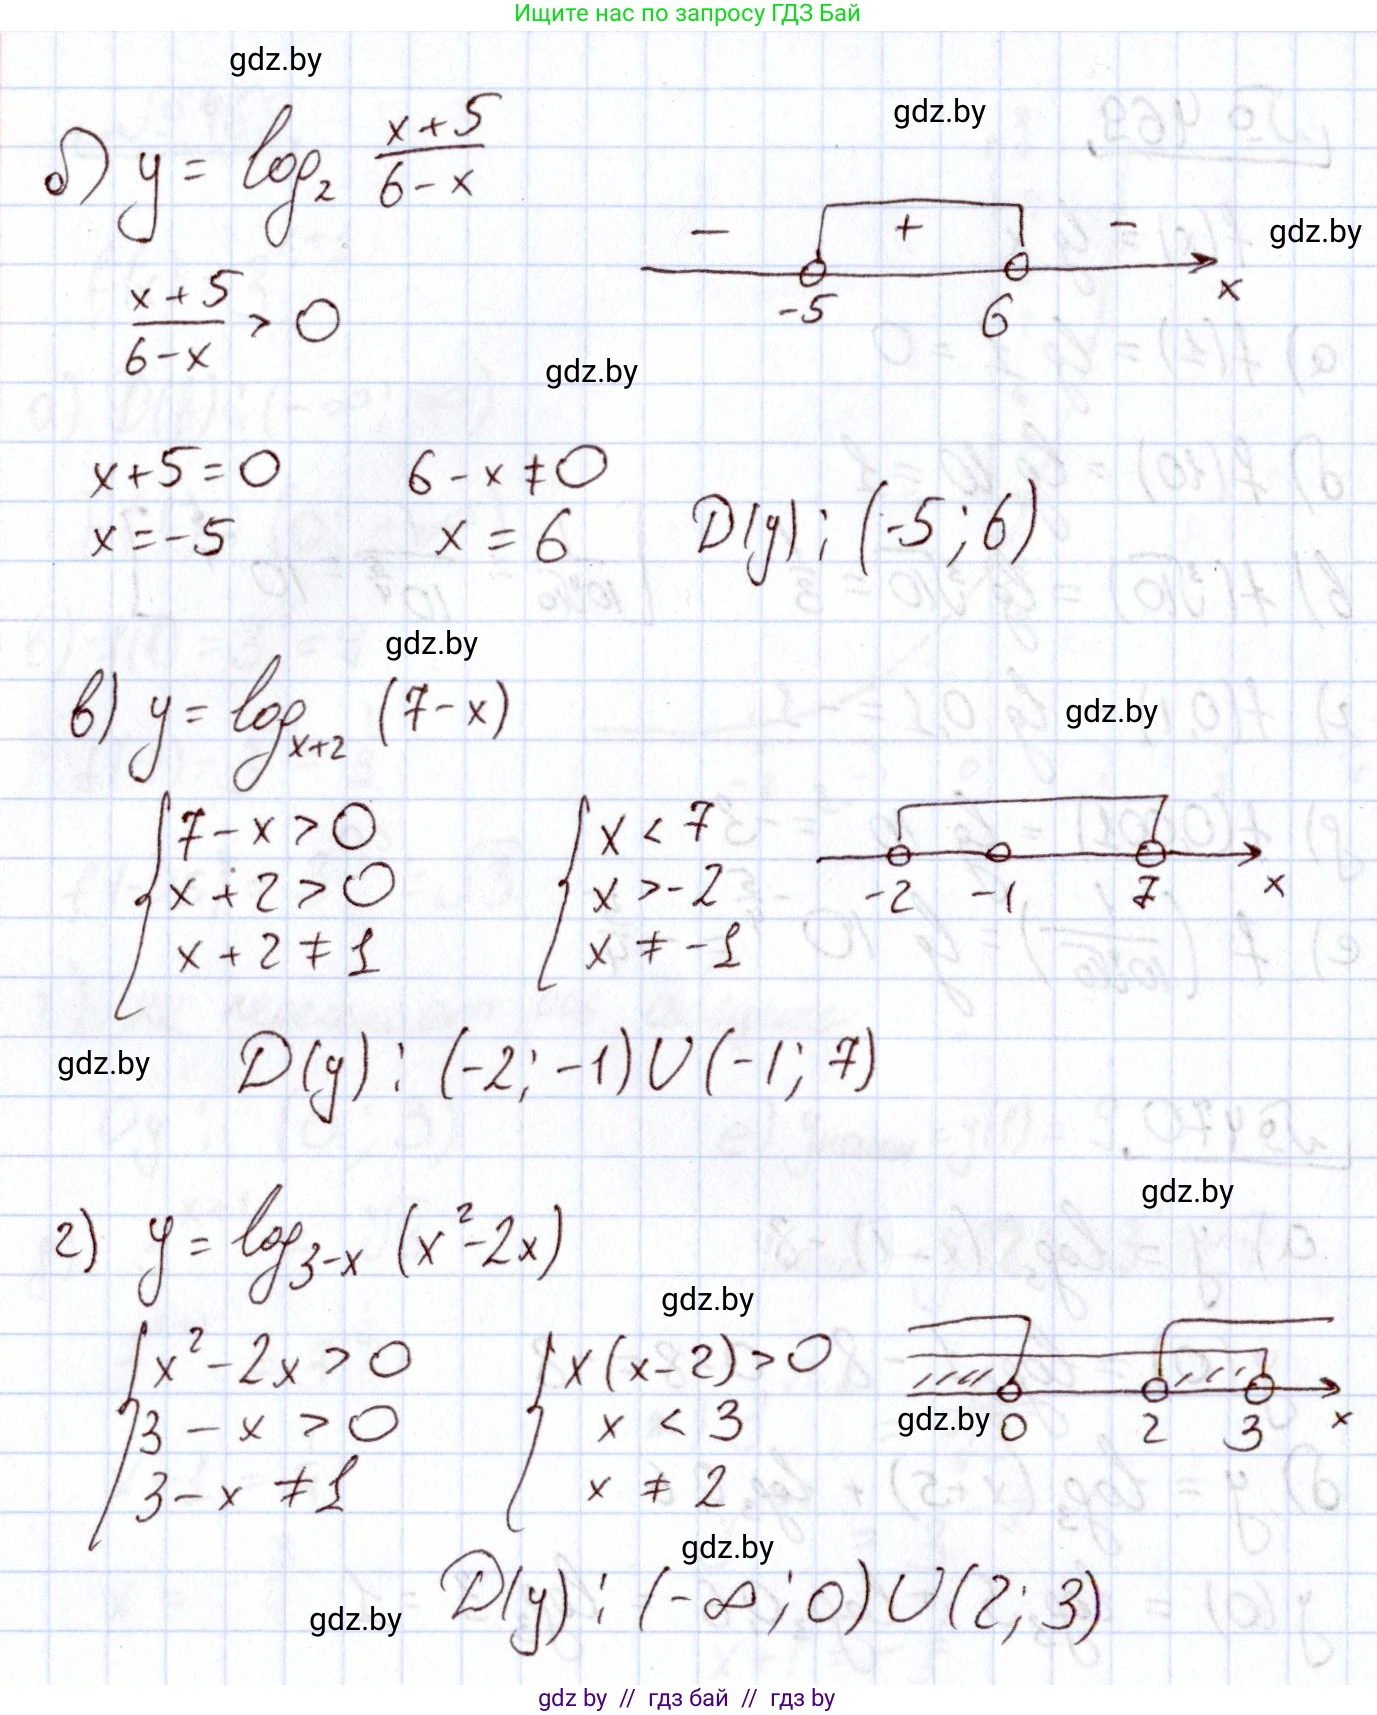 Ищите нас по запросу ГДЗ Бай
gdz.by
gdz.by
б) y = log₂ (x+5)/(6-x)
gdz.by
- + -
-5 6 x
(x+5)/(6-x) > 0
gdz.by
x+5=0 6-x≠0
x=-5 x=6 D(y): (-5; 6)
gdz.by
в) y = log_{x+2} (7-x)
gdz.by
{ 7-x>0 { x<7
x+2>0 x>-2
-2 -1 7 x
x+2≠1 x≠-1
gdz.by D(y): (-2; -1)U(-1; 7)
gdz.by
г) y = log_{3-x} (x²-2x)
gdz.by
{ x²-2x>0 { x(x-2)>0
3-x>0 x<3
gdz.by 0 2 3 x
3-x≠1 x≠2
gdz.by
gdz.by D(y): (-∞; 0)U(2; 3)
gdz by // гдз бай // гдз by